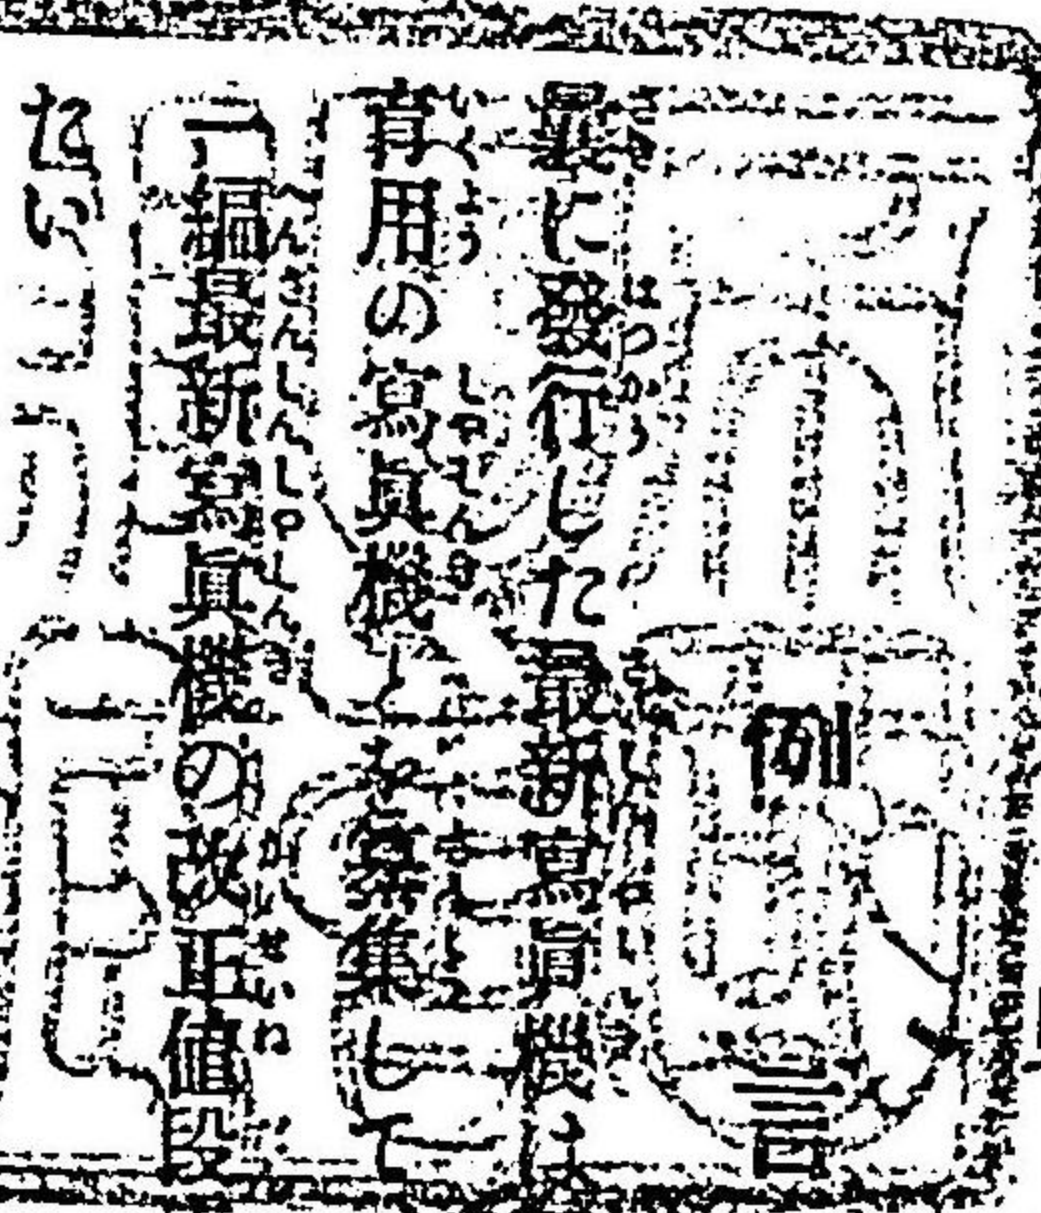 例言
曩に發行した最新寫眞機は
育用の寫眞機とを蒐集して
一編最新寫眞機の改正値段
たい